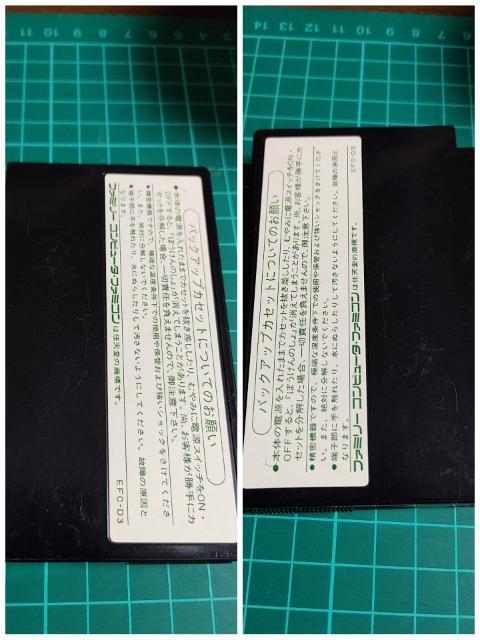 バックアップカセットについてのお願い
●本体の電源を入れたままでカセットを抜き差ししたり、むやみに電源スイッチをON・
OFFすると、『ぼうけんのしょ』が消えてしまうことがあります。尚、お客様が勝手にカ
セットを分解した場合、一切責任を負えませんので、御注意下さい。
●精密機器ですので、極端な温度条件下での使用や保管および強いショックをさけてくださ
い。また、絶対に分解しないでください。
●端子部に手を触れたり、水にぬらしたりして汚さないようにしてください。故障の原因と
なります。
ファミリーコンピュータ・ファミコンは任天堂の商標です。
EFC-D3
バックアップカセットについてのお願い
●本体の電源を入れたままでカセットを抜き差ししたり、むやみに電源スイッチをON・
OFFすると、『ぼうけんのしょ』が消えてしまうことがあります。尚、お客様が勝手にカ
セットを分解した場合、一切責任を負えませんので、御注意下さい。
●精密機器ですので、極端な温度条件下での使用や保管および強いショックをさけてくださ
い。また、絶対に分解しないでください。
●端子部に手を触れたり、水にぬらしたりして汚さないようにしてください。故障の原因と
なります。
ファミリーコンピュータ・ファミコンは任天堂の商標です。
EFC-D3